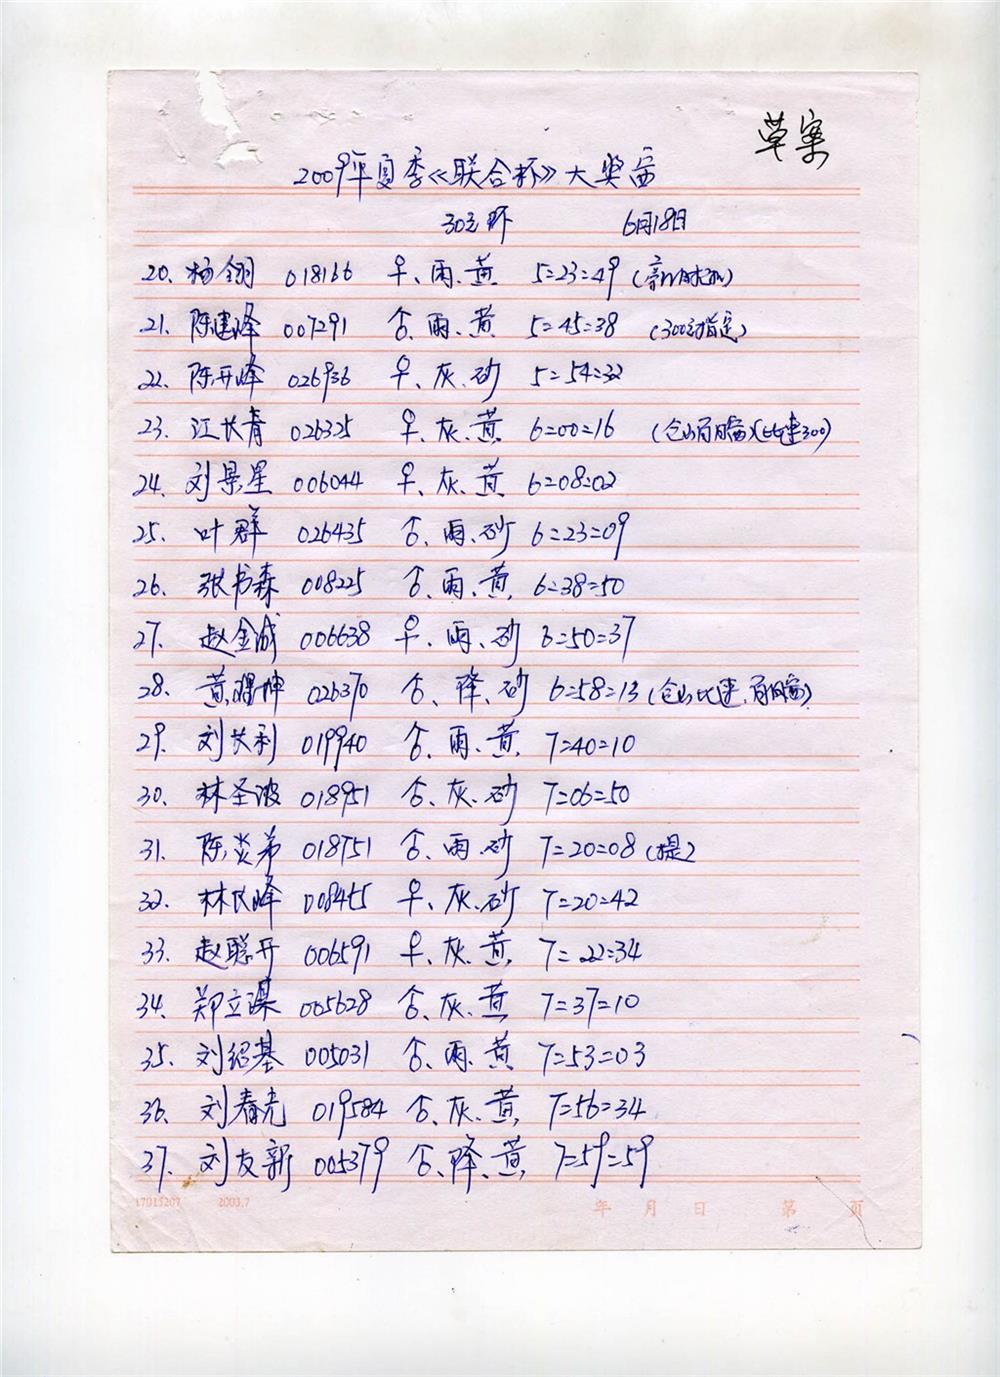 草案
2009年夏季《联合杯》大奖赛
30元环 6月18日
20、杨翎 018166 早、雨、黄 5=23=49
21、陈建峰 007291 合、雨、黄 5=45=38 (300元指定)
22、陈开峰 026936 早、灰、砂 5=54=32
23、江长青 026325 早、灰、黄 6=00=16 (仓山百日赛)(比速300)
24、刘景星 006044 早、灰、黄 6=08=02
25、叶群 026435 合、雨、砂 6=23=09
26、张书森 008225 合、雨、黄 6=38=50
27、赵金诚 006638 早、雨、砂 6=50=37
28、黄 坤 026370 合、绛、砂 6=58=13 (仓山比速、百日赛)
29、刘长利 019940 合、雨、黄 7=40=10
30、林圣波 018951 合、灰、砂 7=06=50
31、陈炎弟 018751 合、雨、砂 7=20=08 (提)
32、林民峰 008455 早、灰、砂 7=20=42
33、赵聪开 006591 早、灰、黄 7=22=34
34、郑立谋 005628 合、灰、黄 7=37=10
35、刘绍基 005031 合、雨、黄 7=53=03
36、刘春光 019584 合、灰、黄 7=56=34
37、刘友新 005379 合、绛、黄 7=59=59
17015207 2003.7 年 月 日 第 页